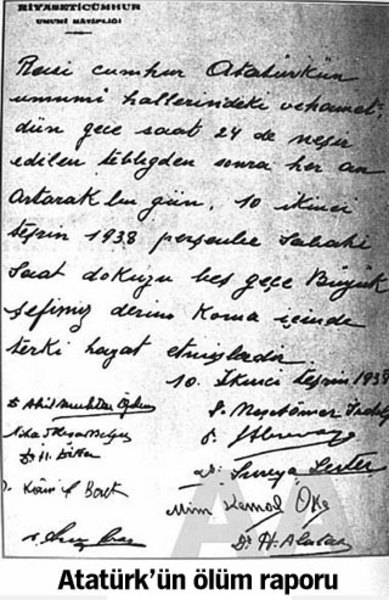 RİYASETİCÜMHUR
UMUMİ KÂTİPLİĞİ
Reisi cumhur Atatürkün
umumî hallerindeki vehamet
dün gece saat 24 de neşir
edilen tebliğden sonra her an
artarak bu gün, 10 ikinci
teşrin 1938 perşenbe sabahı
saat dokuzu beş geçe Büyük
şefimiz derin koma içinde
terki hayat etmişlerdir.
10. İkinci teşrin 1938
Dr Akil Muhtar Özden
Dr. Neşet Ömer İrdelp
Nihat Reşat Belger
Dr. Süreya Serter
Mim Kemal Öke
Dr. H. Alataş
AA
Atatürk'ün ölüm raporu